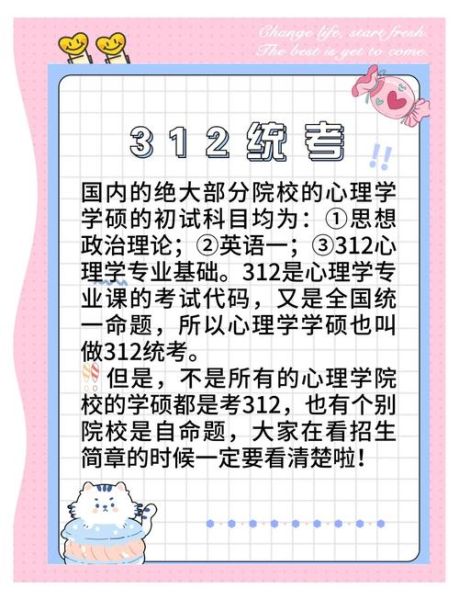 Change life, start fresh.
The best is yet to come.
312统考
!!
国内的绝大部分院校的心理学
学硕的初试科目均为：①思想
政治理论；②英语一；③312心
理学专业基础。312是心理学专
业课的考试代码，又是全国统
一命题，所以心理学学硕也叫
做312统考。
‼但是，不是所有的心理学院
校的学硕都是考312，也有个别
院校是自命题，大家在看招生
简章的时候一定要看清楚啦！